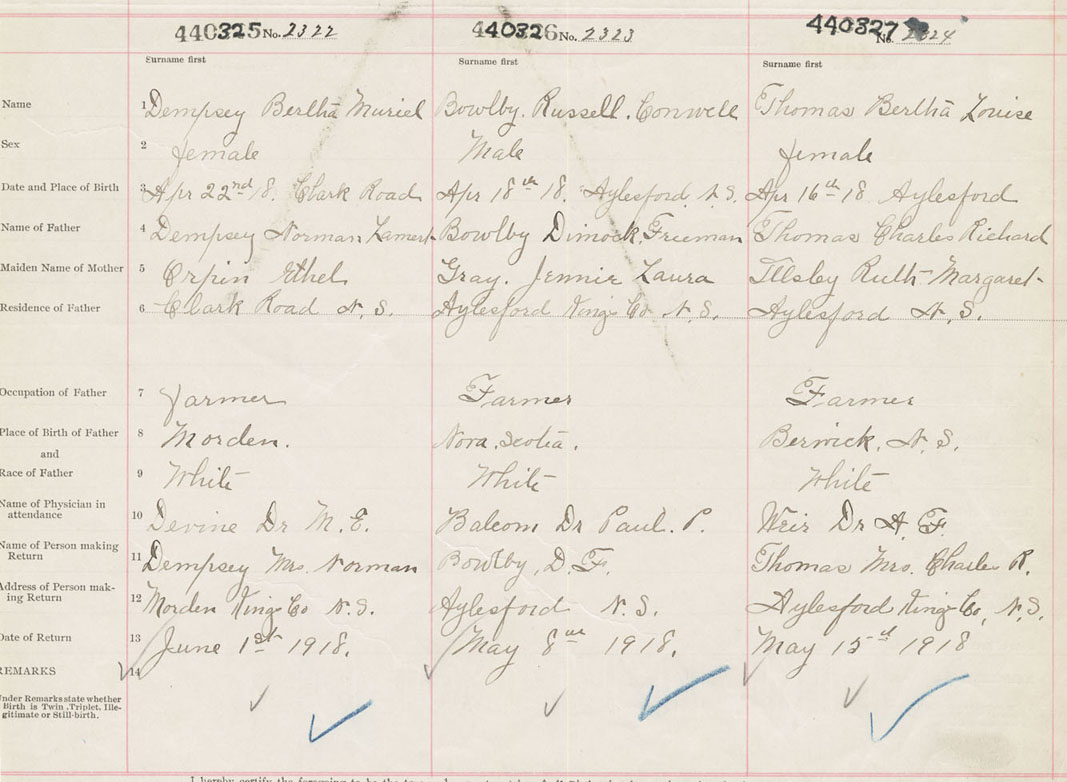 440325 No. 2322 440326 No. 2323 440327 No. 2324
Surname first Surname first Surname first
Name 1 Dempsey Bertha Muriel Bowlby. Russell. Conwell Thomas Bertha Louise
Sex 2 female Male female
Date and Place of Birth 3 Apr 22nd 18. Clark Road Apr 18th 18. Aylesford. N.S. Apr 16th 18 Aylesford
Name of Father 4 Dempsey Norman Lamert Bowlby Dimock, Freeman Thomas Charles Richard
Maiden Name of Mother 5 Orpin Ethel Gray. Jennie Laura Illsley Ruth Margaret
Residence of Father 6 Clark Road N.S. Aylesford Kings Co N.S. Aylesford N.S.
Occupation of Father 7 farmer Farmer Farmer
Place of Birth of Father 8 Morden. Nova Scotia. Berwick, N.S.
and
Race of Father 9 White White White
Name of Physician in
attendance 10 Devine Dr M. E. Balcom Dr Paul. P. Weir Dr A F.
Name of Person making
Return 11 Dempsey Mrs. Norman Bowlby, D. F. Thomas Mrs. Charles R.
Address of Person mak-
ing Return 12 Morden Kings Co N.S. Aylesford N.S. Aylesford Kings Co, N.S.
Date of Return 13 June 1st 1918. May 8th 1918. May 15th 1918
REMARKS 14
Under Remarks state whether
Birth is Twin, Triplet, Ille-
gitimate or Still-birth.